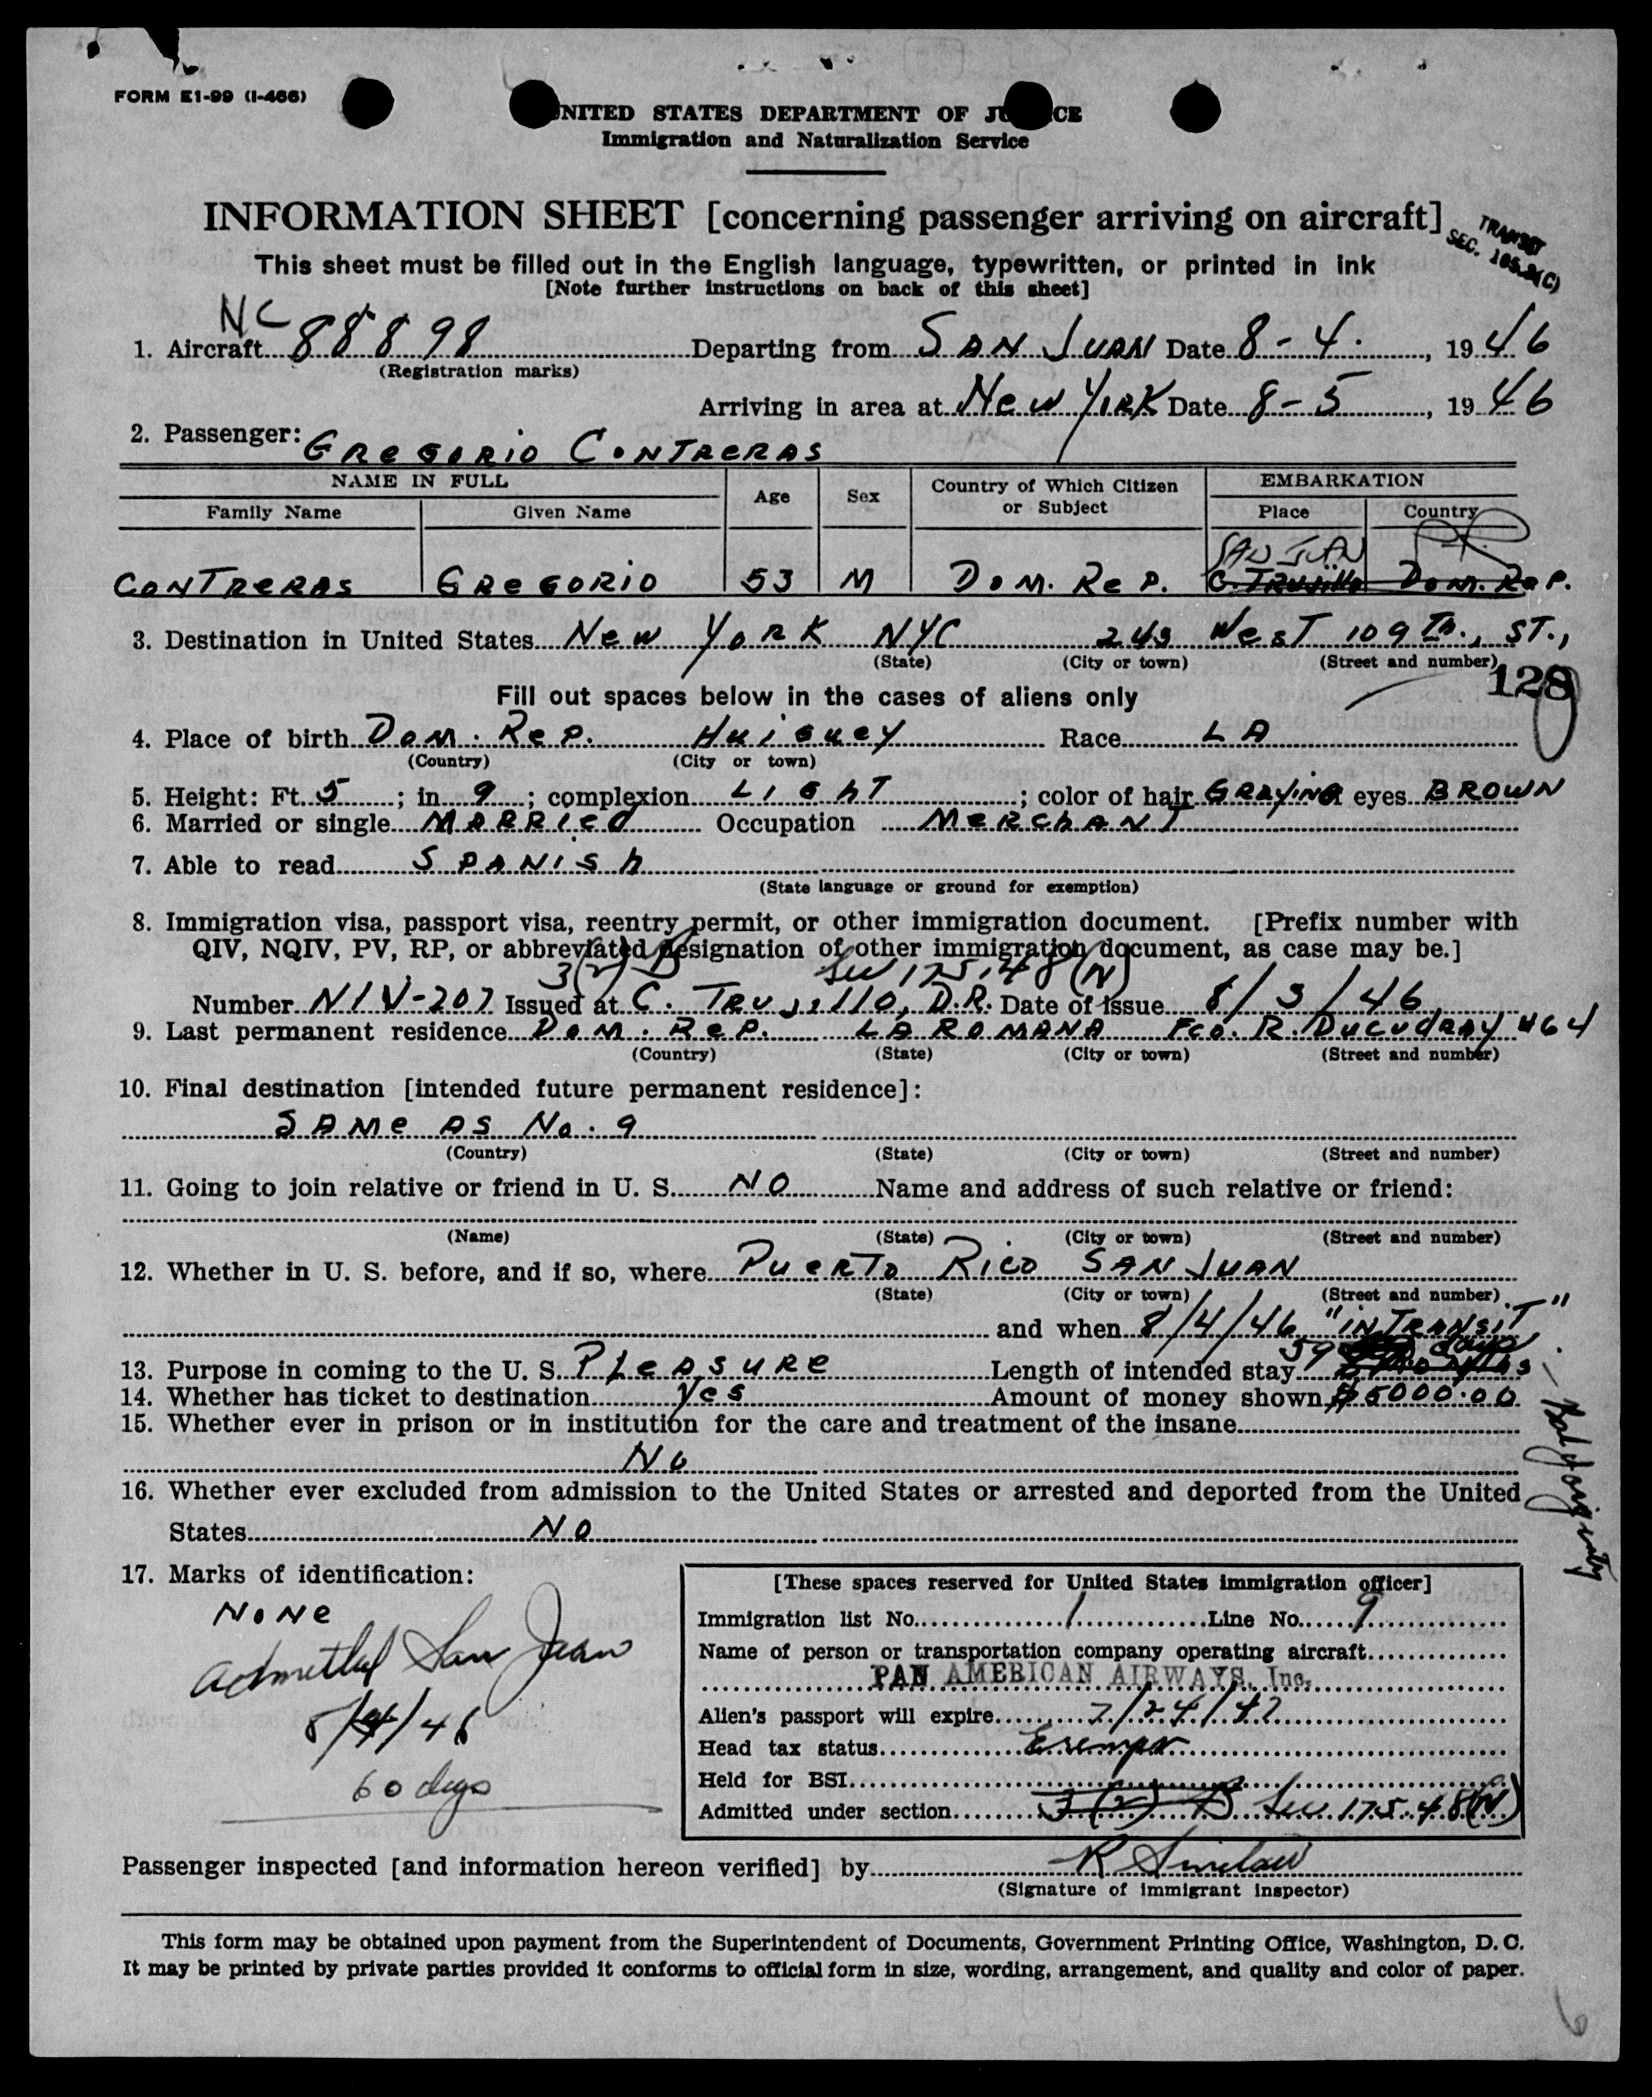 FORM E1-99 (I-466)
UNITED STATES DEPARTMENT OF JUSTICE
Immigration and Naturalization Service
INFORMATION SHEET [concerning passenger arriving on aircraft]
TRANSIT
SEC. 105.3(C)
This sheet must be filled out in the English language, typewritten, or printed in ink
[Note further instructions on back of this sheet]
NC
1. Aircraft 88898 Departing from SAN JUAN Date 8-4. , 1946
(Registration marks)
Arriving in area at New YORK Date 8-5 , 1946
2. Passenger: GREGORIO CONTRERAS
NAME IN FULL Age Sex Country of Which Citizen or Subject EMBARKATION
Family Name Given Name Place Country
SAN JUAN PR
CONTRERAS GREGORIO 53 M DOM. REP. C. TRUJILLO DOM. REP.
3. Destination in United States New YORK NYC 243 WEST 109 TH., ST.,
(State) (City or town) (Street and number)
128
Fill out spaces below in the cases of aliens only
4. Place of birth DOM. REP. HUIGUEY Race LA
(Country) (City or town)
5. Height: Ft. 5 ; in. 9 ; complexion LIGHT ; color of hair GRAYING eyes BROWN
6. Married or single MARRIED Occupation MERCHANT
7. Able to read SPANISH
(State language or ground for exemption)
8. Immigration visa, passport visa, reentry permit, or other immigration document. [Prefix number with
QIV, NQIV, PV, RP, or abbreviated designation of other immigration document, as case may be.]
3(2) B Sec 175.48(N)
Number NIV-207 Issued at C. TRUJILLO, D.R. Date of issue 8/3/46
9. Last permanent residence DOM. REP. LA ROMANA FCO. R. DUCUDRAY #64
(Country) (State) (City or town) (Street and number)
10. Final destination [intended future permanent residence]:
SAME AS No. 9
(Country) (State) (City or town) (Street and number)
11. Going to join relative or friend in U. S. NO Name and address of such relative or friend:
(Name) (State) (City or town) (Street and number)
12. Whether in U. S. before, and if so, where PUERTO RICO SAN JUAN
(State) (City or town) (Street and number)
and when 8/4/46 "IN TRANSIT"
59 days
13. Purpose in coming to the U. S. PLEASURE Length of intended stay
14. Whether has ticket to destination Yes Amount of money shown $5000.00
15. Whether ever in prison or in institution for the care and treatment of the insane
No
16. Whether ever excluded from admission to the United States or arrested and deported from the United
States NO
17. Marks of identification:
NONE
Admitted San Juan
8/4/46
60 days
[These spaces reserved for United States immigration officer]
Immigration list No. 1 Line No. 9
Name of person or transportation company operating aircraft
PAN AMERICAN AIRWAYS, Inc.
Alien's passport will expire 7/24/47
Head tax status Exempt
Held for BSI
Admitted under section 3(2) B Sec 175.48(N)
Passenger inspected [and information hereon verified] by R Sinclair
(Signature of immigrant inspector)
This form may be obtained upon payment from the Superintendent of Documents, Government Printing Office, Washington, D. C.
It may be printed by private parties provided it conforms to official form in size, wording, arrangement, and quality and color of paper.
6